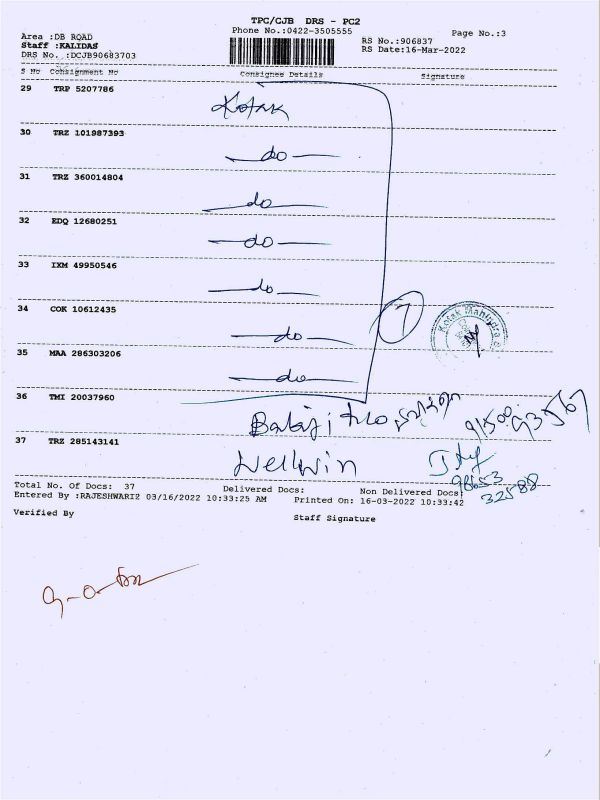 TPC/CJB DRS - PC2
Area :DB ROAD Phone No.:0422-3505555 Page No.:3
Staff :KALIDAS RS No.:906837
DRS No. :DCJB90683703 RS Date:16-Mar-2022
S No Consignment No Consignee Details Signature
29 TRP 5207786 Kotak
30 TRZ 101987393 do
31 TRZ 360014804 do
32 EDQ 12680251 do
33 IXM 49950546 do
34 COK 10612435 do
7
Kotak Mahindra
35 MAA 286303206 do
36 TMI 20037960 Balaji
37 TRZ 285143141 Wellwin
98653
32588
Total No. Of Docs: 37 Delivered Docs: Non Delivered Docs:
Entered By :RAJESHWARI2 03/16/2022 10:33:25 AM Printed On: 16-03-2022 10:33:42
Verified By Staff Signature